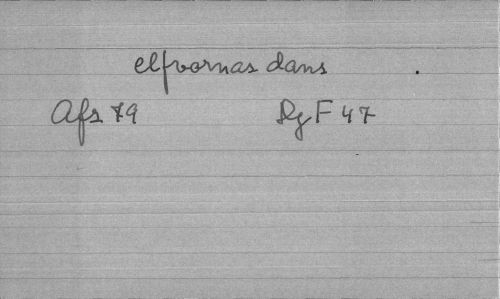 elfvornas dans
Afs 79 Rg F 47